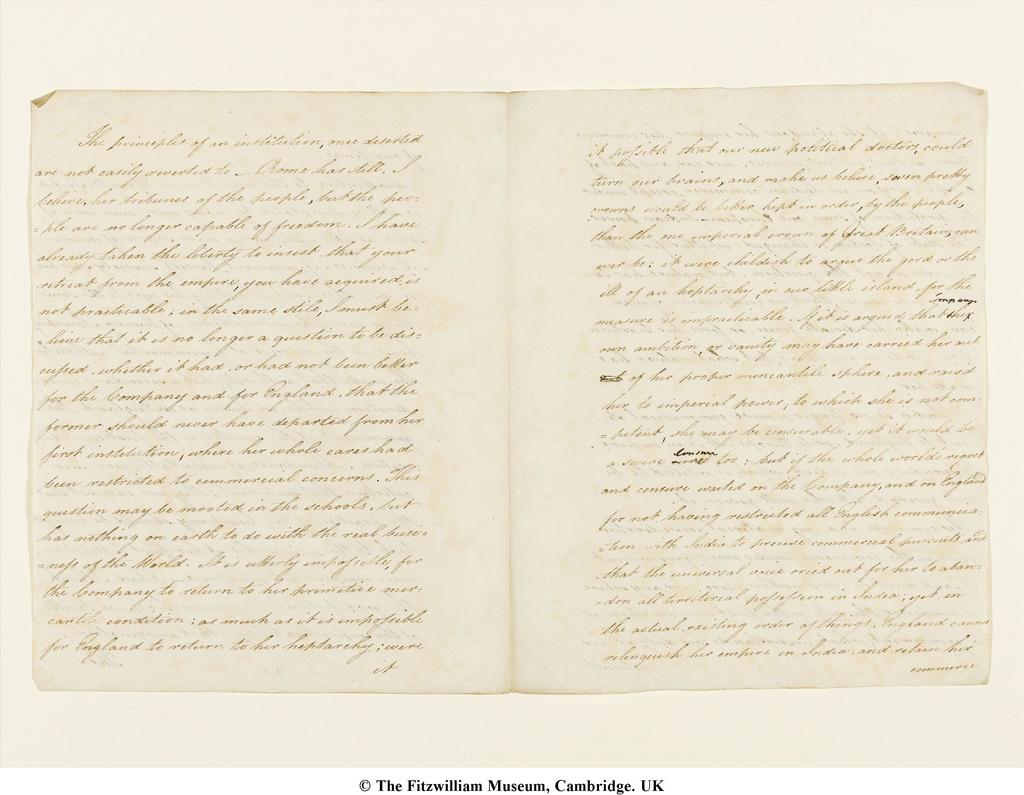 The principles of an institution, once deserted
are not easily reverted to – Rome has still, I
believe, her tribunes of the people, but the peo-
=ple are no longer capable of freedom. I have
already taken the liberty to insist, that your
retreat from the empire, you have acquired, is
not practicable; in the same stile, I must be-
=lieve that it is no longer a question to be dis-
cuſsed, whether it had, or had not been better
for the Company and for England, that the
former should never have departed from her
first institution, where her whole cares had
been restricted to commercial concerns. This
question may be mooted in the schools, but
has nothing on earth to do with the real busi-
=neſs of the World. It is utterly impoſsible, for
the Company to return to her primitive mer-
cantile condition: as much as it is impoſsible
for England to return to her heptarchy; were
it
it poſsible that our new political doctors, could
turn our brains, and make us believe, seven pretty
crowns would be better kept in order, by the people,
than the one imperial crown of Great Britain, can
ever be; it were childish to argue the good or the
ill of an heptarchy, in our little island, for the
measure is impracticable. If it is argued that the Company
own ambition, or vanity may have carried her out
of her proper mercantile sphere, and raised
her to imperial power, to which she is not com-
=petent, she may be censurable, yet it would be
a severe censure too; but if the whole worlds regret
and censure waited on the Company, and on England
for not having restricted all English communica-
=tion with India to precise commercial pursuits, and
that the universal voice cried out for her to aban-
=don all territorial poſseſsion in India; yet in
the actual existing order of things, England cannot
relinquish her empire in India, and retain her
commerce
© The Fitzwilliam Museum, Cambridge. UK